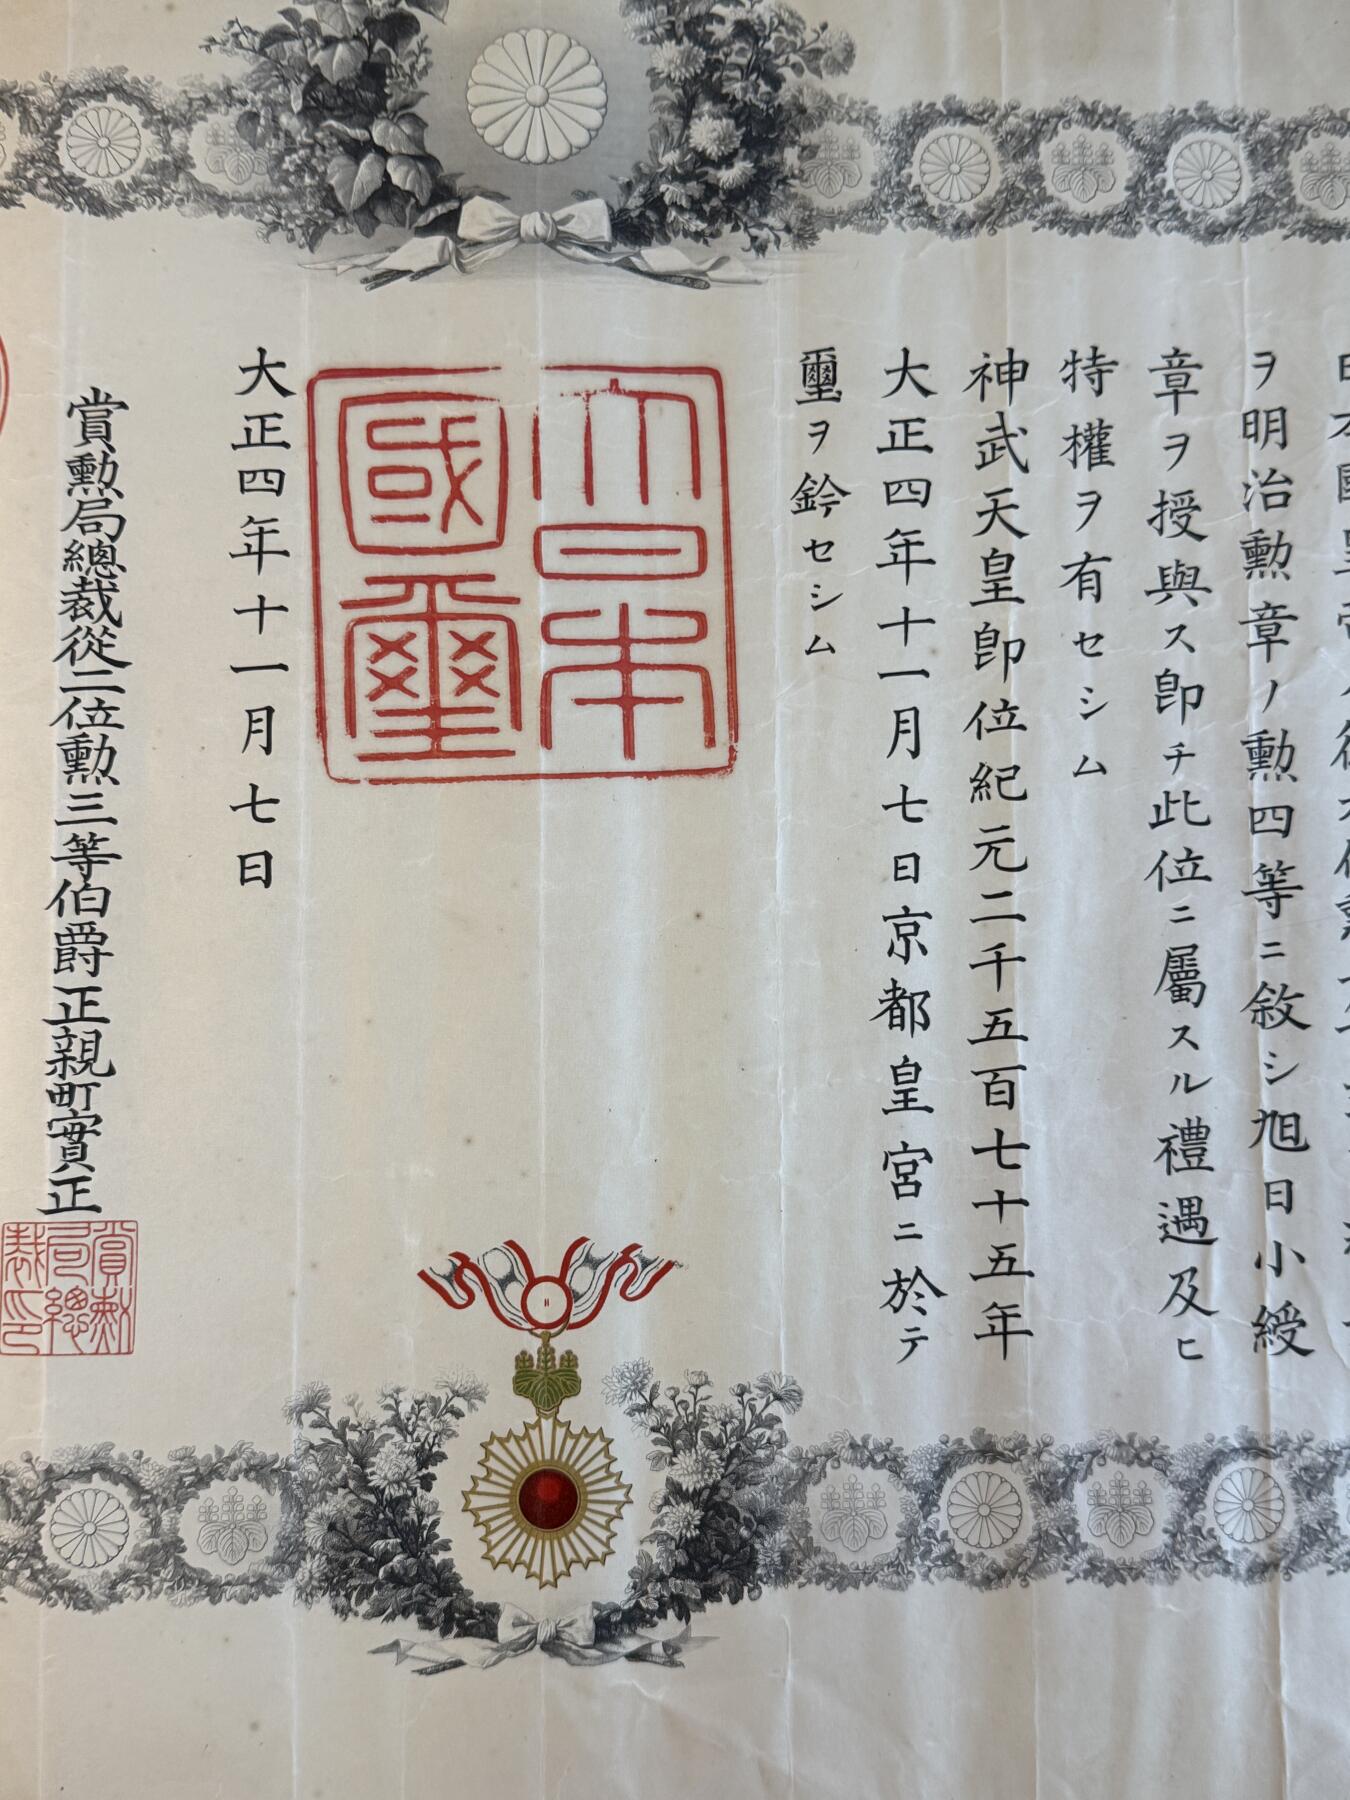 ヲ明治勲章ノ勲四等ニ敘シ旭日小綬
章ヲ授與ス卽チ此位ニ屬スル禮遇及ヒ
特權ヲ有セシム
神武天皇卽位紀元二千五百七十五年
大正四年十一月七日京都皇宮ニ於テ
璽ヲ鈐セシム
大日本
國璽
大正四年十一月七日
賞勲局總裁從二位勲三等伯爵正親町實正
賞勲
局總
裁印